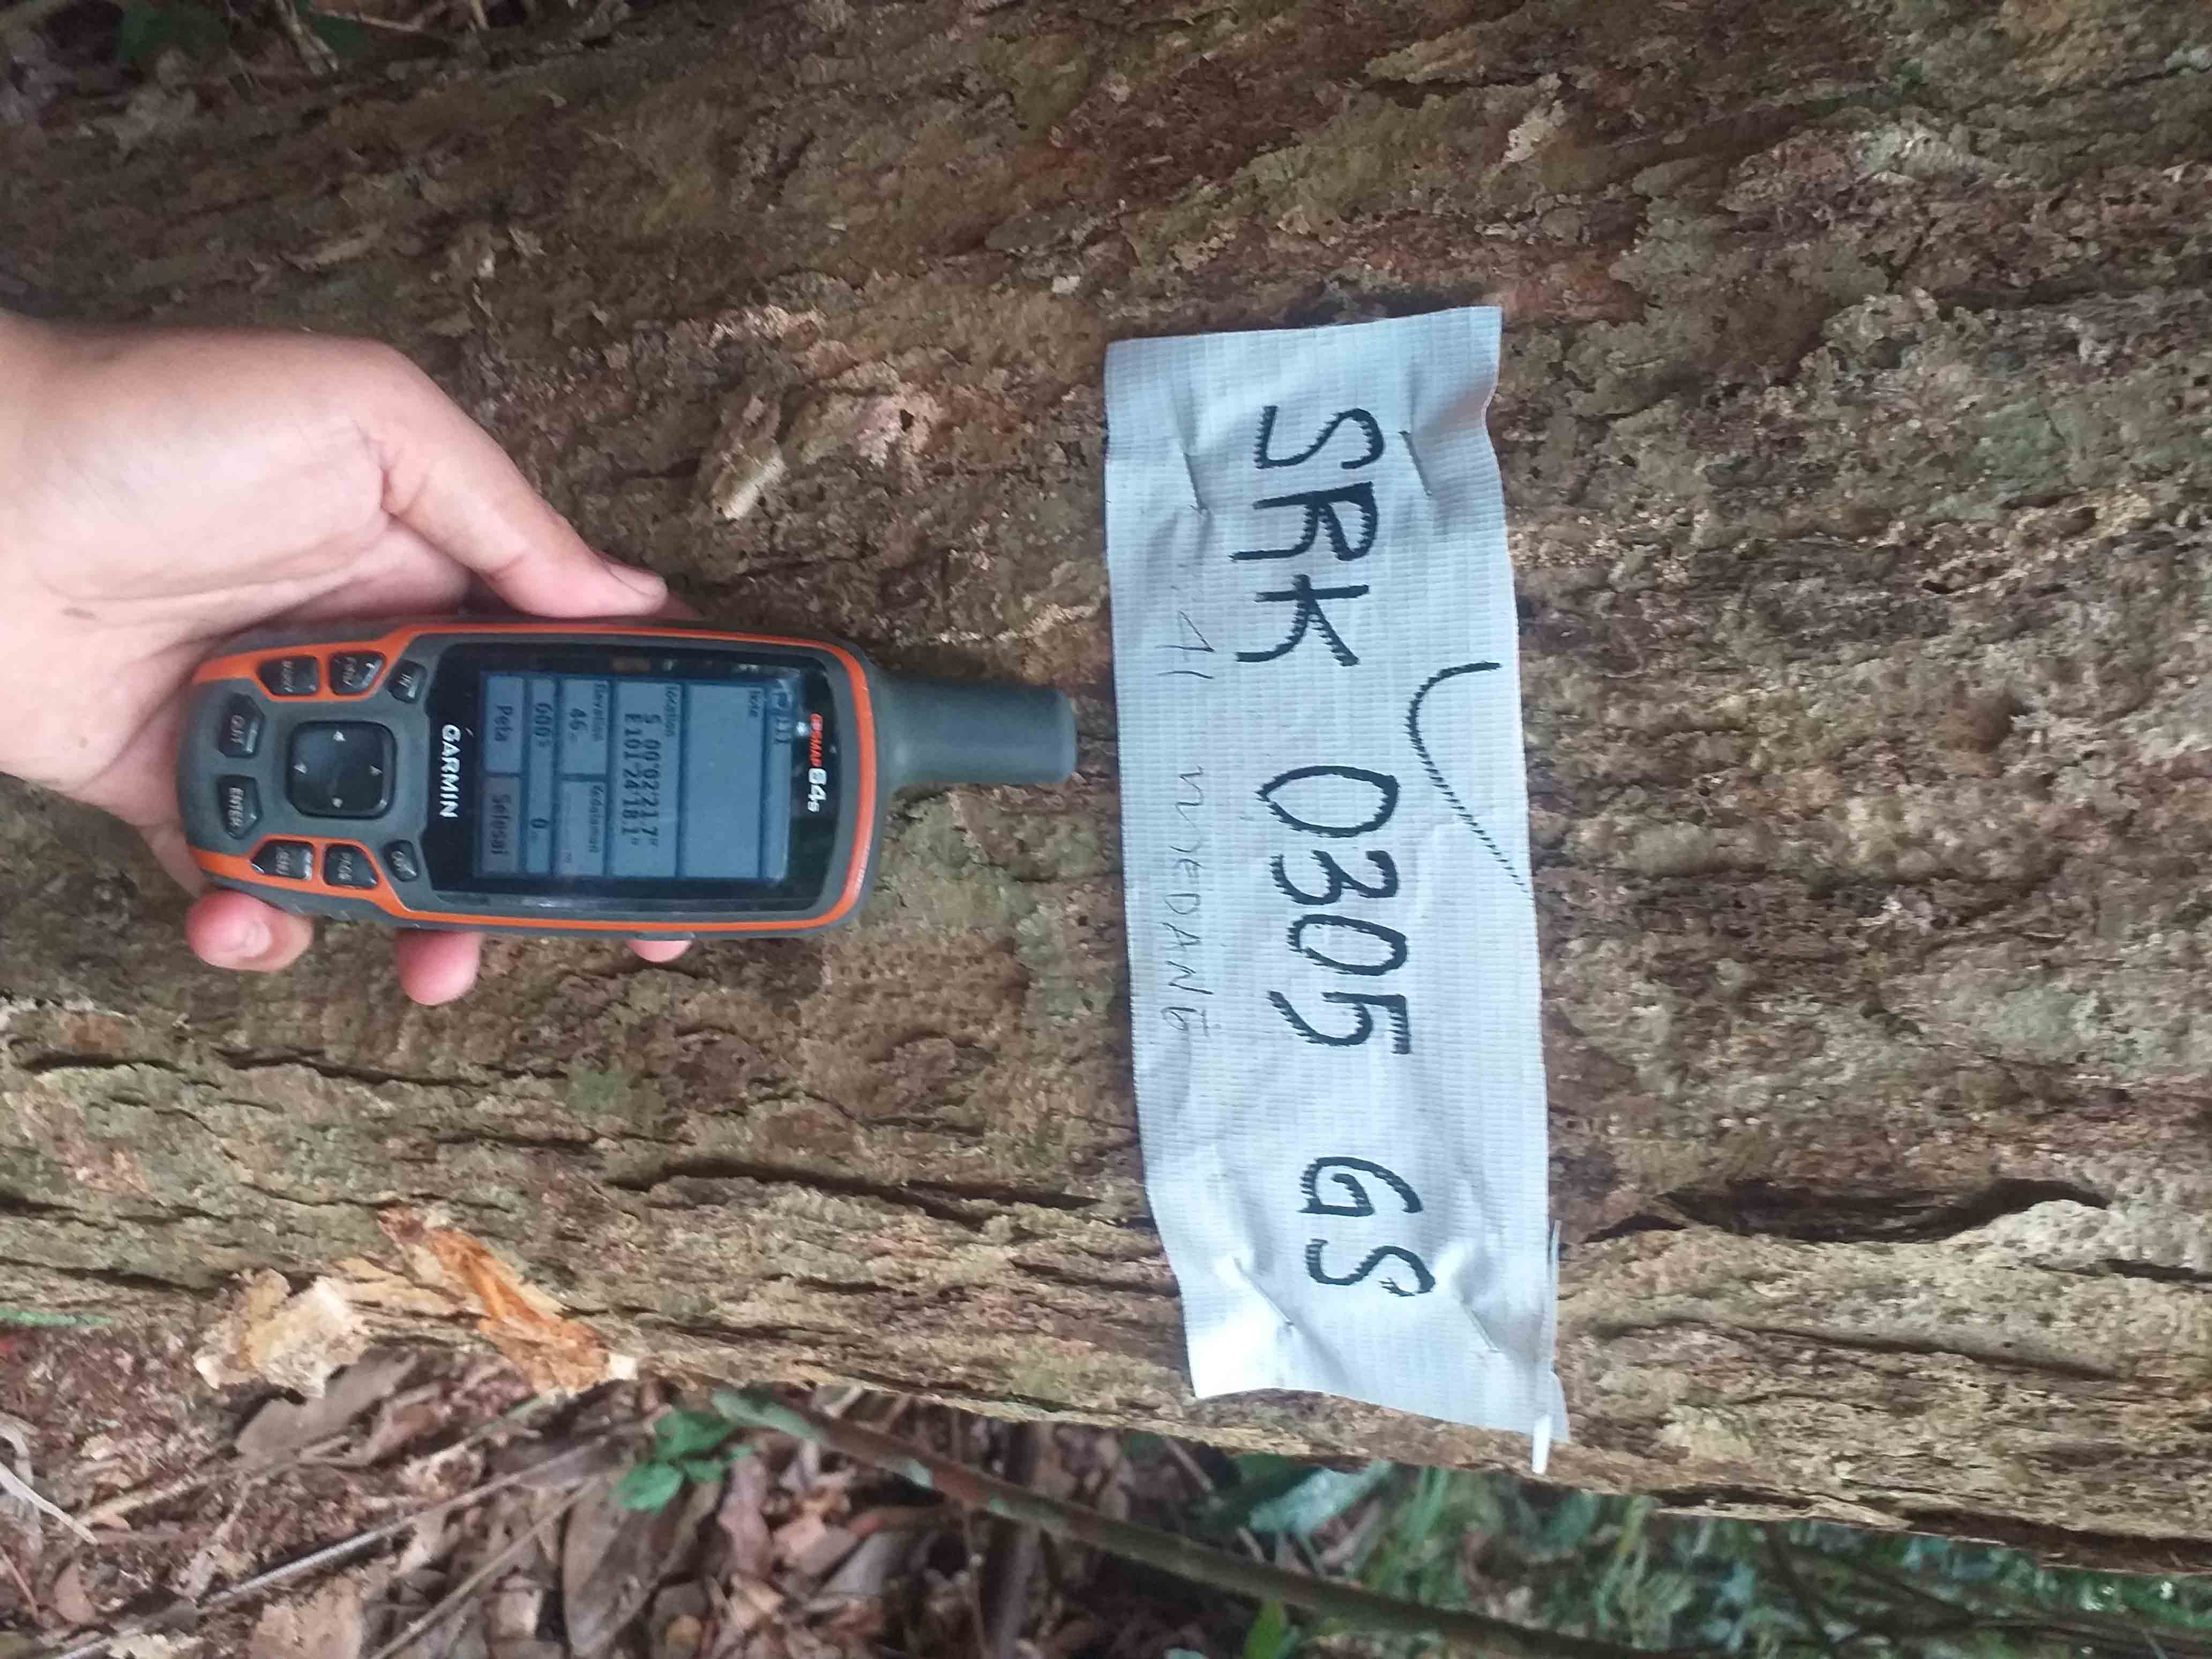 SRK 0305 GS
41 MEDANG
GPSMAP 64s
111
Note
Location
S 00°02'21.7"
E101°24'18.1"
Elevation Kedalaman
46 m
0 m
Peta Selesai
GARMIN
IN OUT
FIND PAGE
MARK MENU
QUIT ENTER